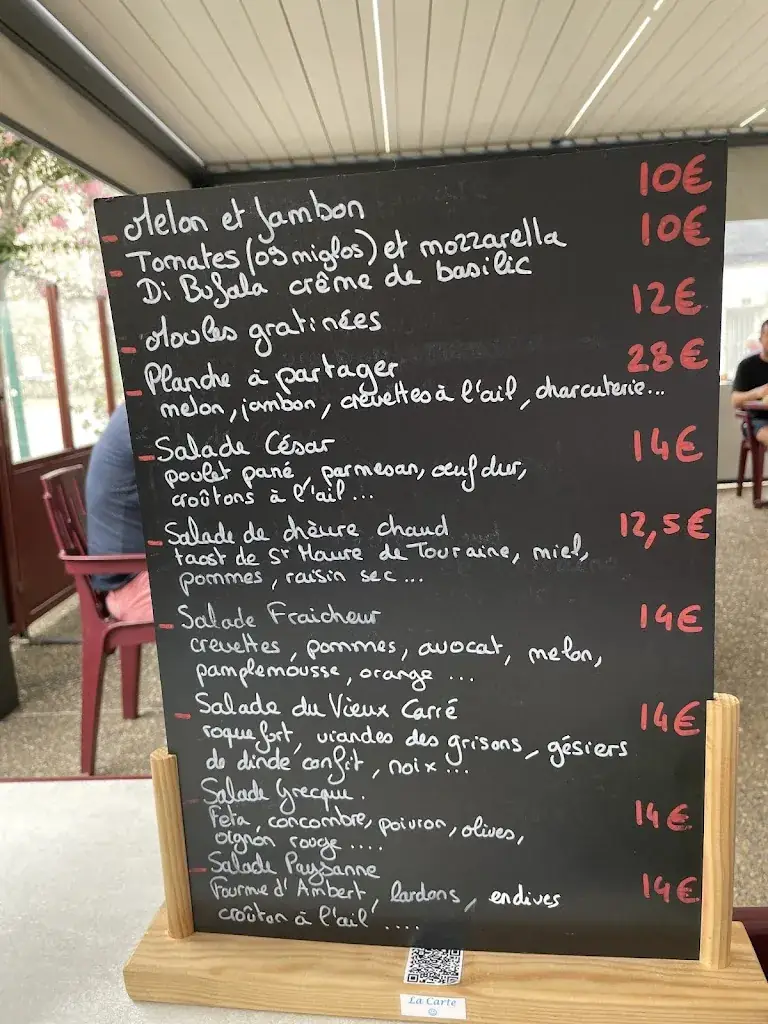 - Melon et Jambon 10€
- Tomates (og miglos) et mozzarella 10€
Di Bufala crême de basilic
- Moules gratinées 12€
- Planche à partager 28€
melon, jambon, crevettes à l'ail, charcuterie...
- Salade César 14€
poulet pané, parmesan, œuf dur,
croûtons à l'ail...
- Salade de chèvre chaud 12,5€
taost de St Maure de Touraine, miel,
pommes, raisin sec...
- Salade Fraicheur 14€
crevettes, pommes, avocat, melon,
pamplemousse, orange ...
- Salade du Vieux Carré 14€
roquefort, viandes des grisons, gésiers
de dinde confit, noix...
- Salade Grecque.
Feta, concombre, poivron, olives, 14€
oignon rouge....
- Salade Paysanne
Fourme d'Ambert, lardons, endives 14€
croûton à l'ail ....
La Carte